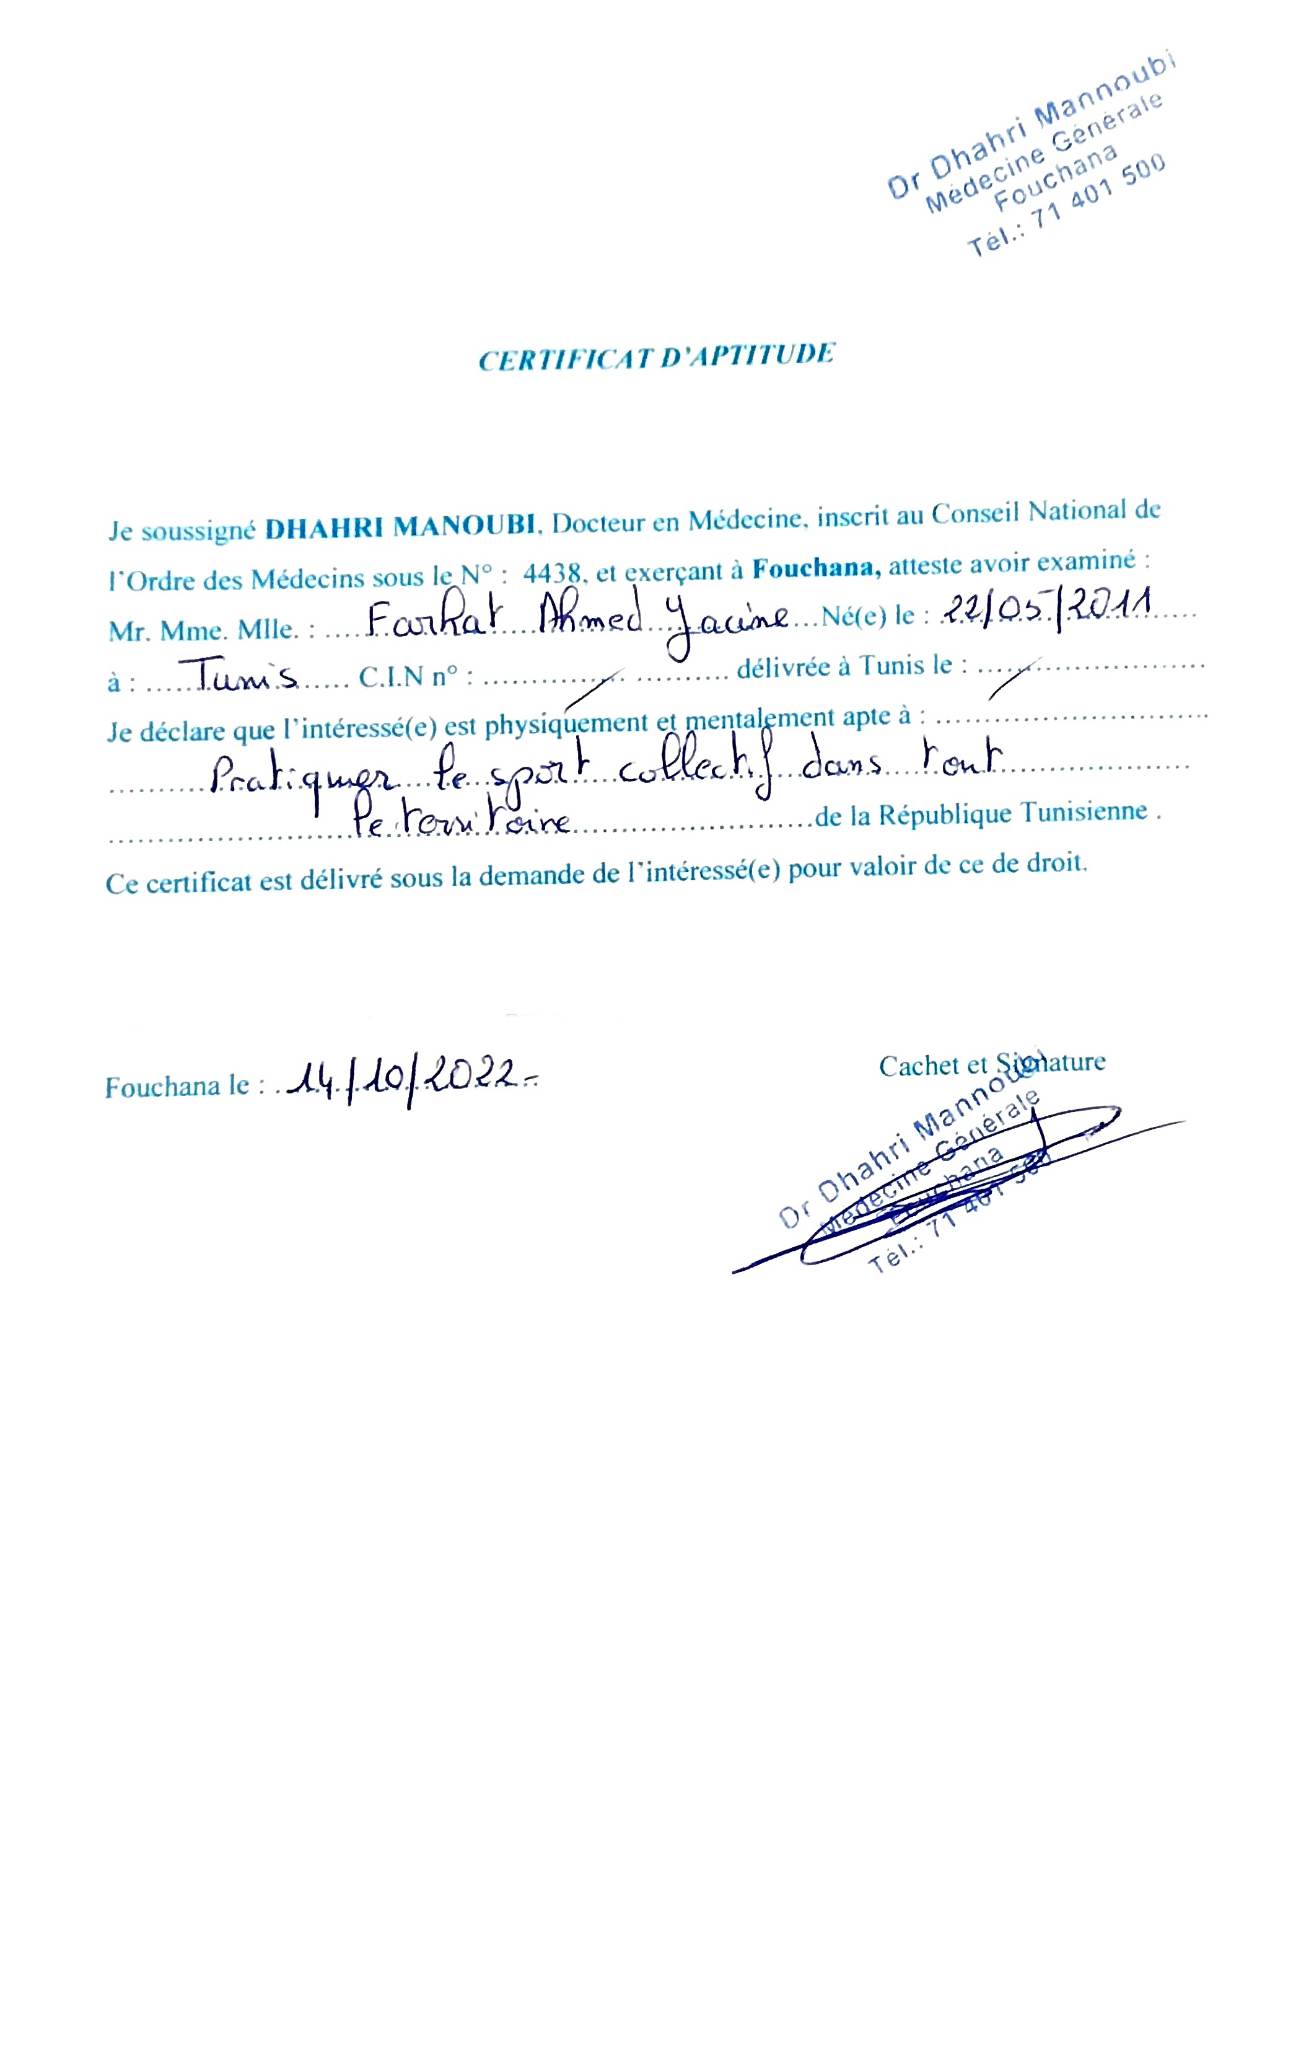 Dr Dhahri Mannoubi
Médecine Générale
Fouchana
Tél.: 71 401 500
CERTIFICAT D'APTITUDE
Je soussigné DHAHRI MANOUBI, Docteur en Médecine, inscrit au Conseil National de
l'Ordre des Médecins sous le N° : 4438, et exerçant à Fouchana, atteste avoir examiné :
Mr. Mme. Mlle. : Farhat Ahmed Yacine Né(e) le : 22/05/2011
à : Tunis C.I.N n° : / délivrée à Tunis le : /
Je déclare que l'intéressé(e) est physiquement et mentalement apte à :
Pratiquer le sport collectif dans tout
le territoire de la République Tunisienne .
Ce certificat est délivré sous la demande de l'intéressé(e) pour valoir de ce de droit.
Fouchana le : 14/10/2022-
Cachet et Signature
Dr Dhahri Mannoubi
Médecine Générale
Fouchana
Tél.: 71 401 500